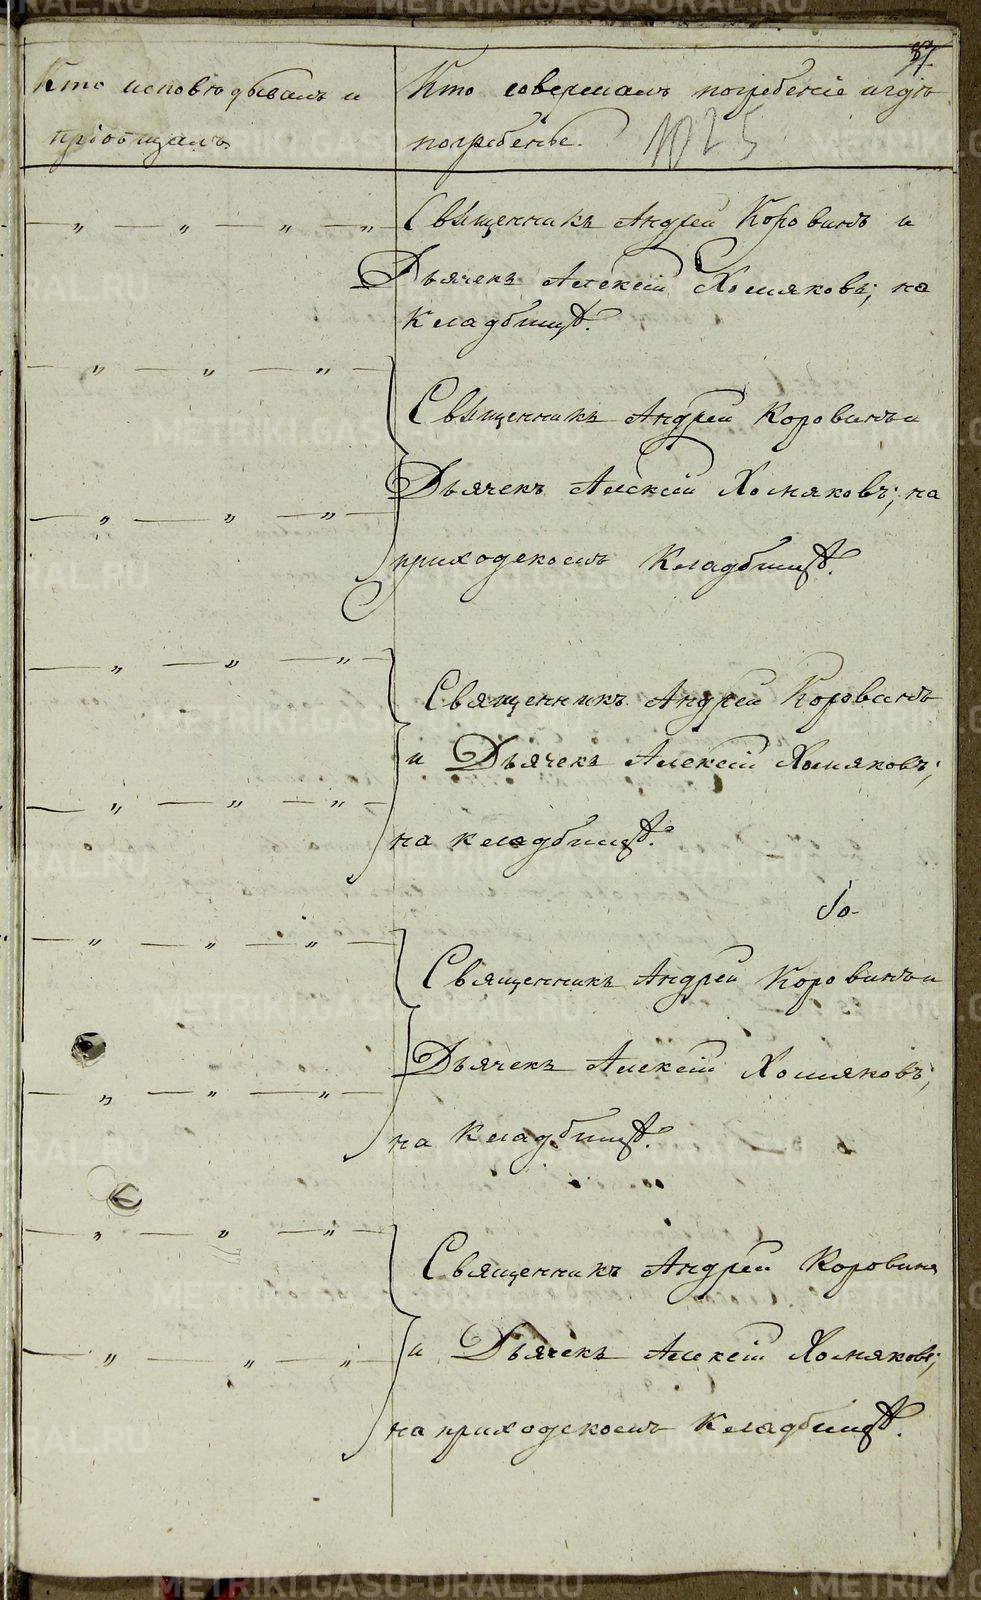 87.
Кто исповѣдывалъ и
пріобщалъ.
Кто совершалъ погребеніе и гдѣ
погребены.
1025
— „ — „ — „ — „
Священникъ Андрей Коровинъ и
Дьячекъ Алексій Хомяковъ; на
Кладбищѣ.
— „ — „ — „ —
Священникъ Андрей Коровинъ и
Дьячекъ Алексій Хомяковъ; на
— „ — „ — „ —
приходскомъ Кладбищѣ.
— „ — „ — „ —
Священникъ Андрей Коровинъ
и Дьячекъ Алексій Хомяковъ;
— „ — „ — „ —
на кладбищѣ.
— „ — „ — „ —
Священникъ Андрей Коровинъ и
Дьячекъ Алексій Хомяковъ;
— „ — „ — „ —
на Кладбищѣ.
— „ — „ — „ —
Священникъ Андрей Коровинъ
и Дьячекъ Алексій Хомяковъ;
— „ — „ — „ —
на приходскомъ Кладбищѣ.
METRIKI.GASO-URAL.RU